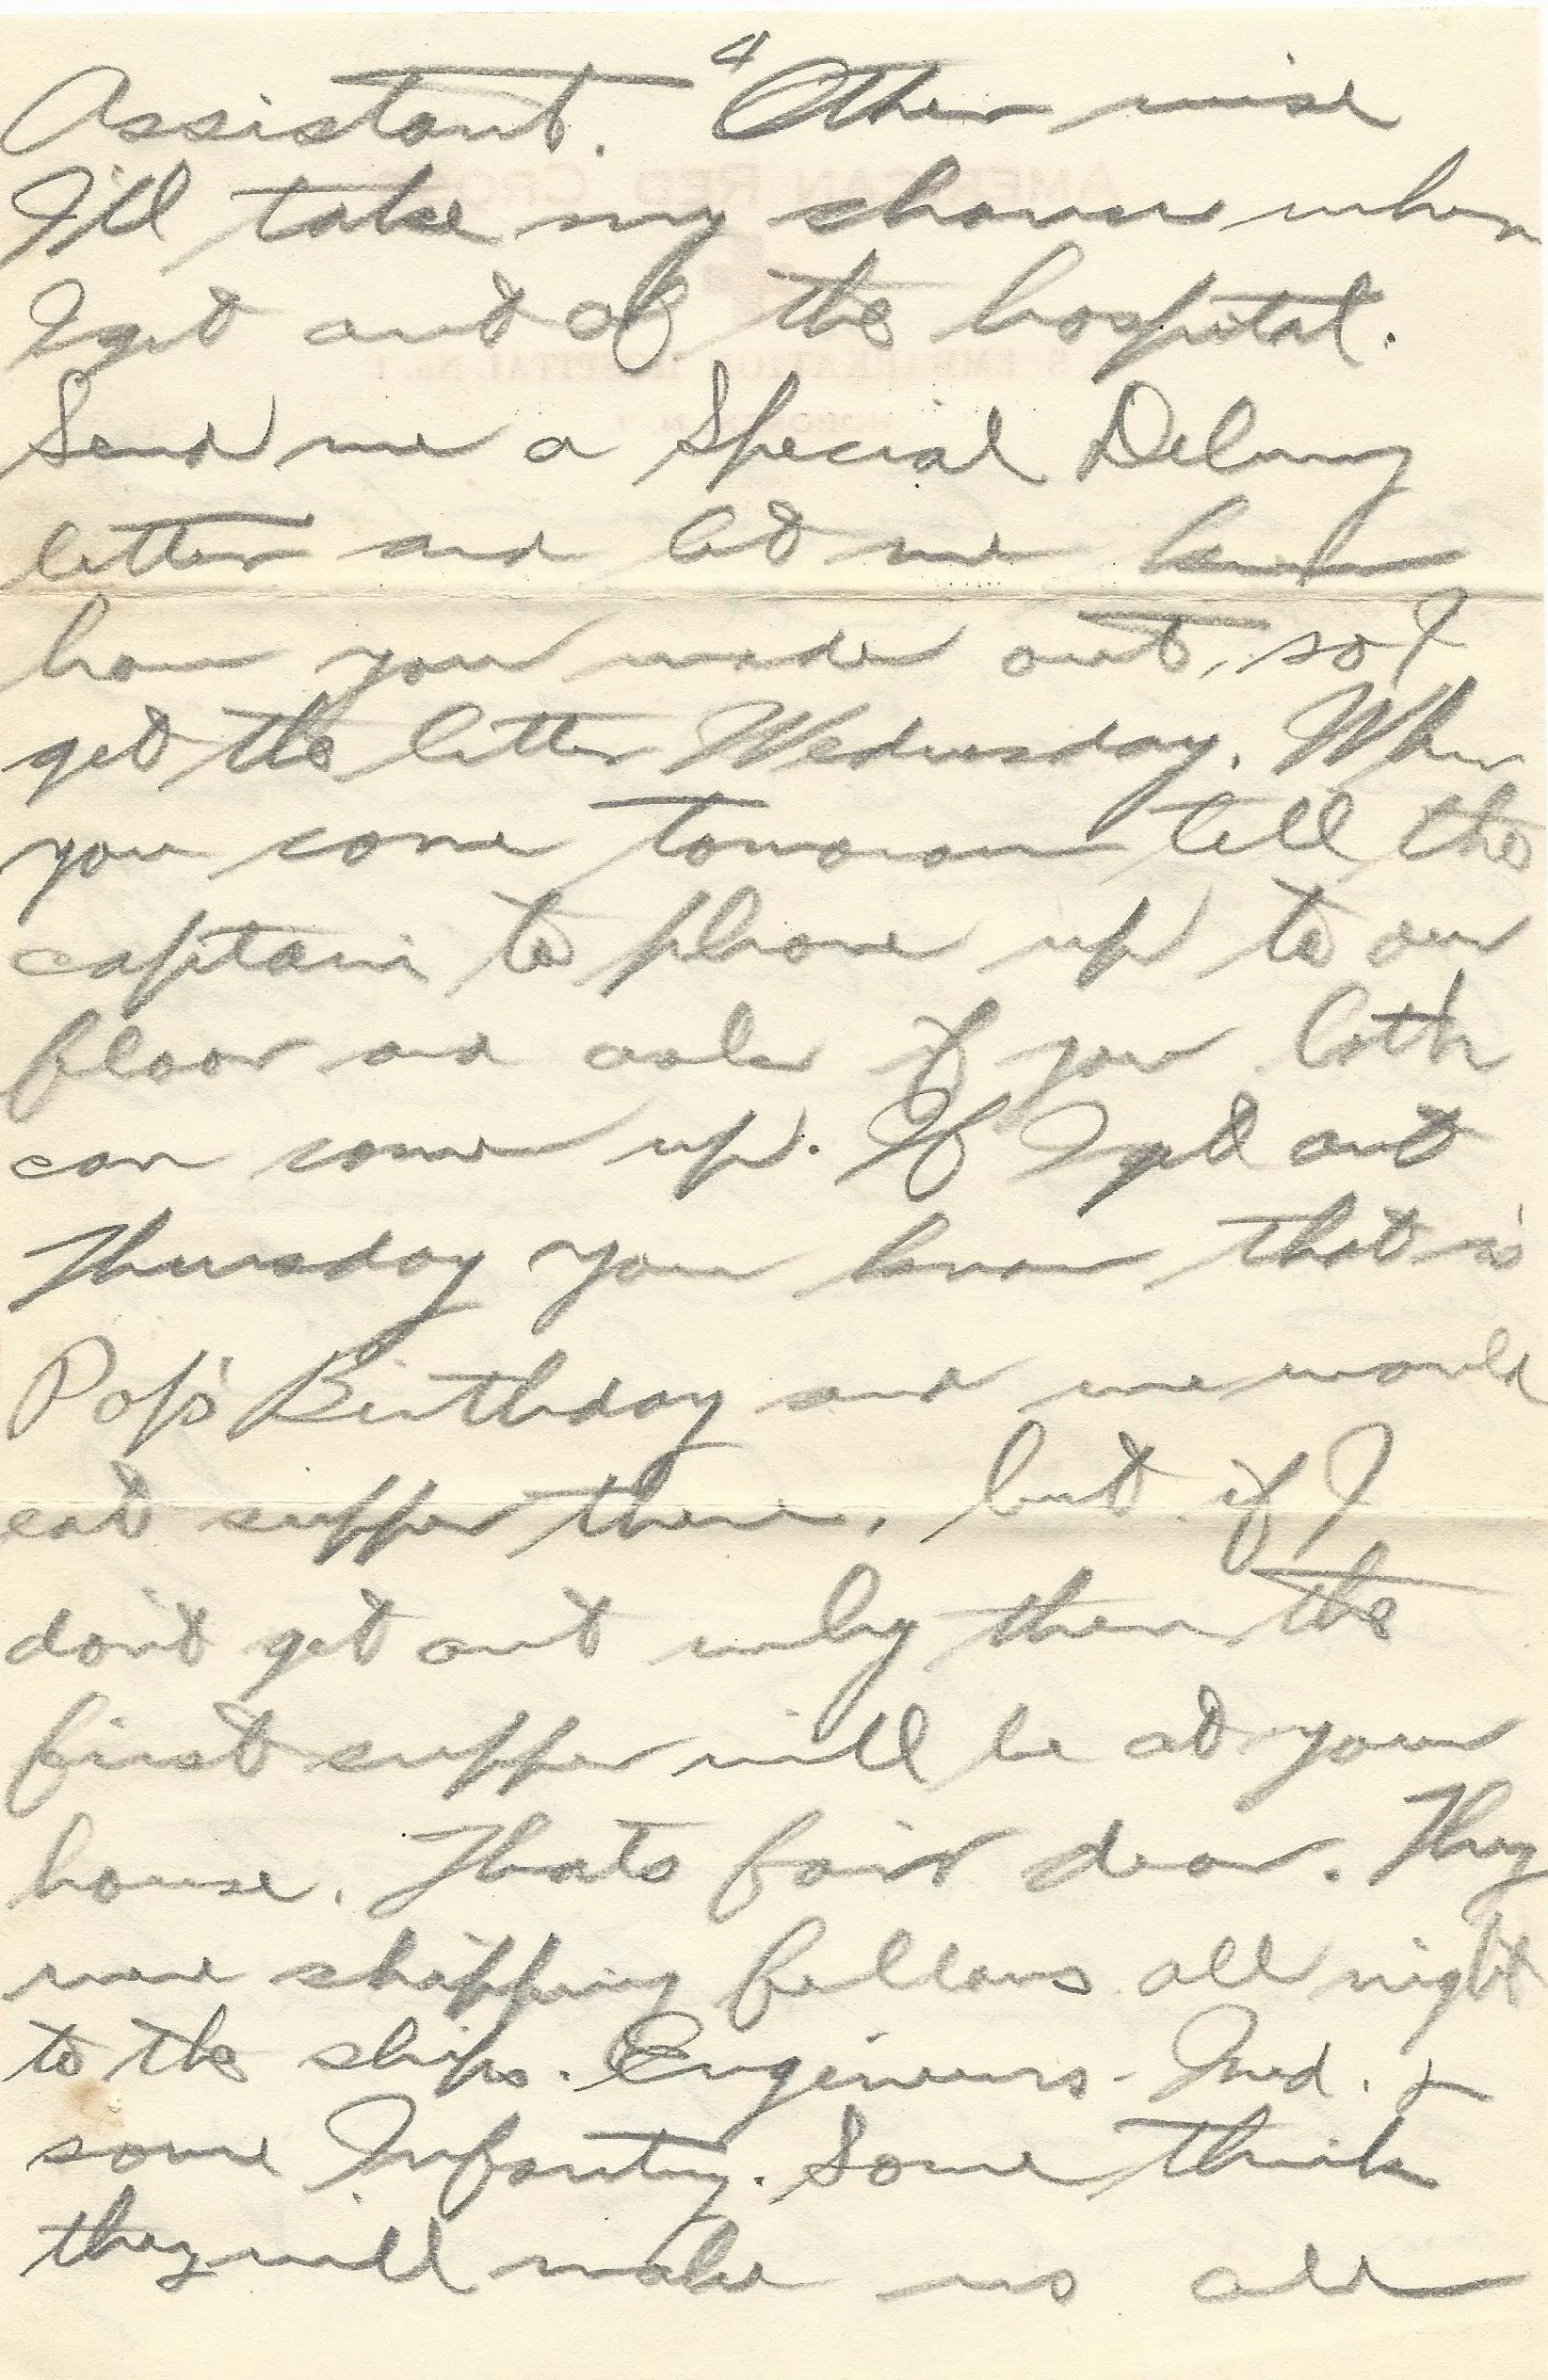 4
Assistant. Other wise
I'll take my chances when
I get out of the hospital.
Send me a Special Delivery
letter and let me know
how you made out, so I
get the letter Wednesday. When
you come tomorrow tell the
captain to phone up to our
floor and ask if you both
can come up. If I get out
Thursday you know that is
Pop's Birthday and we would
eat supper there, but if I
don't get out why then the
first supper will be at your
house. Thats fair dear. They
were shipping fellows all night
to the ships. Engineers - Med. &
some Infantry. Some think
they will make us all
AMERICAN RED CROSS
U.S. EMBARKATION HOSPITAL No. 1